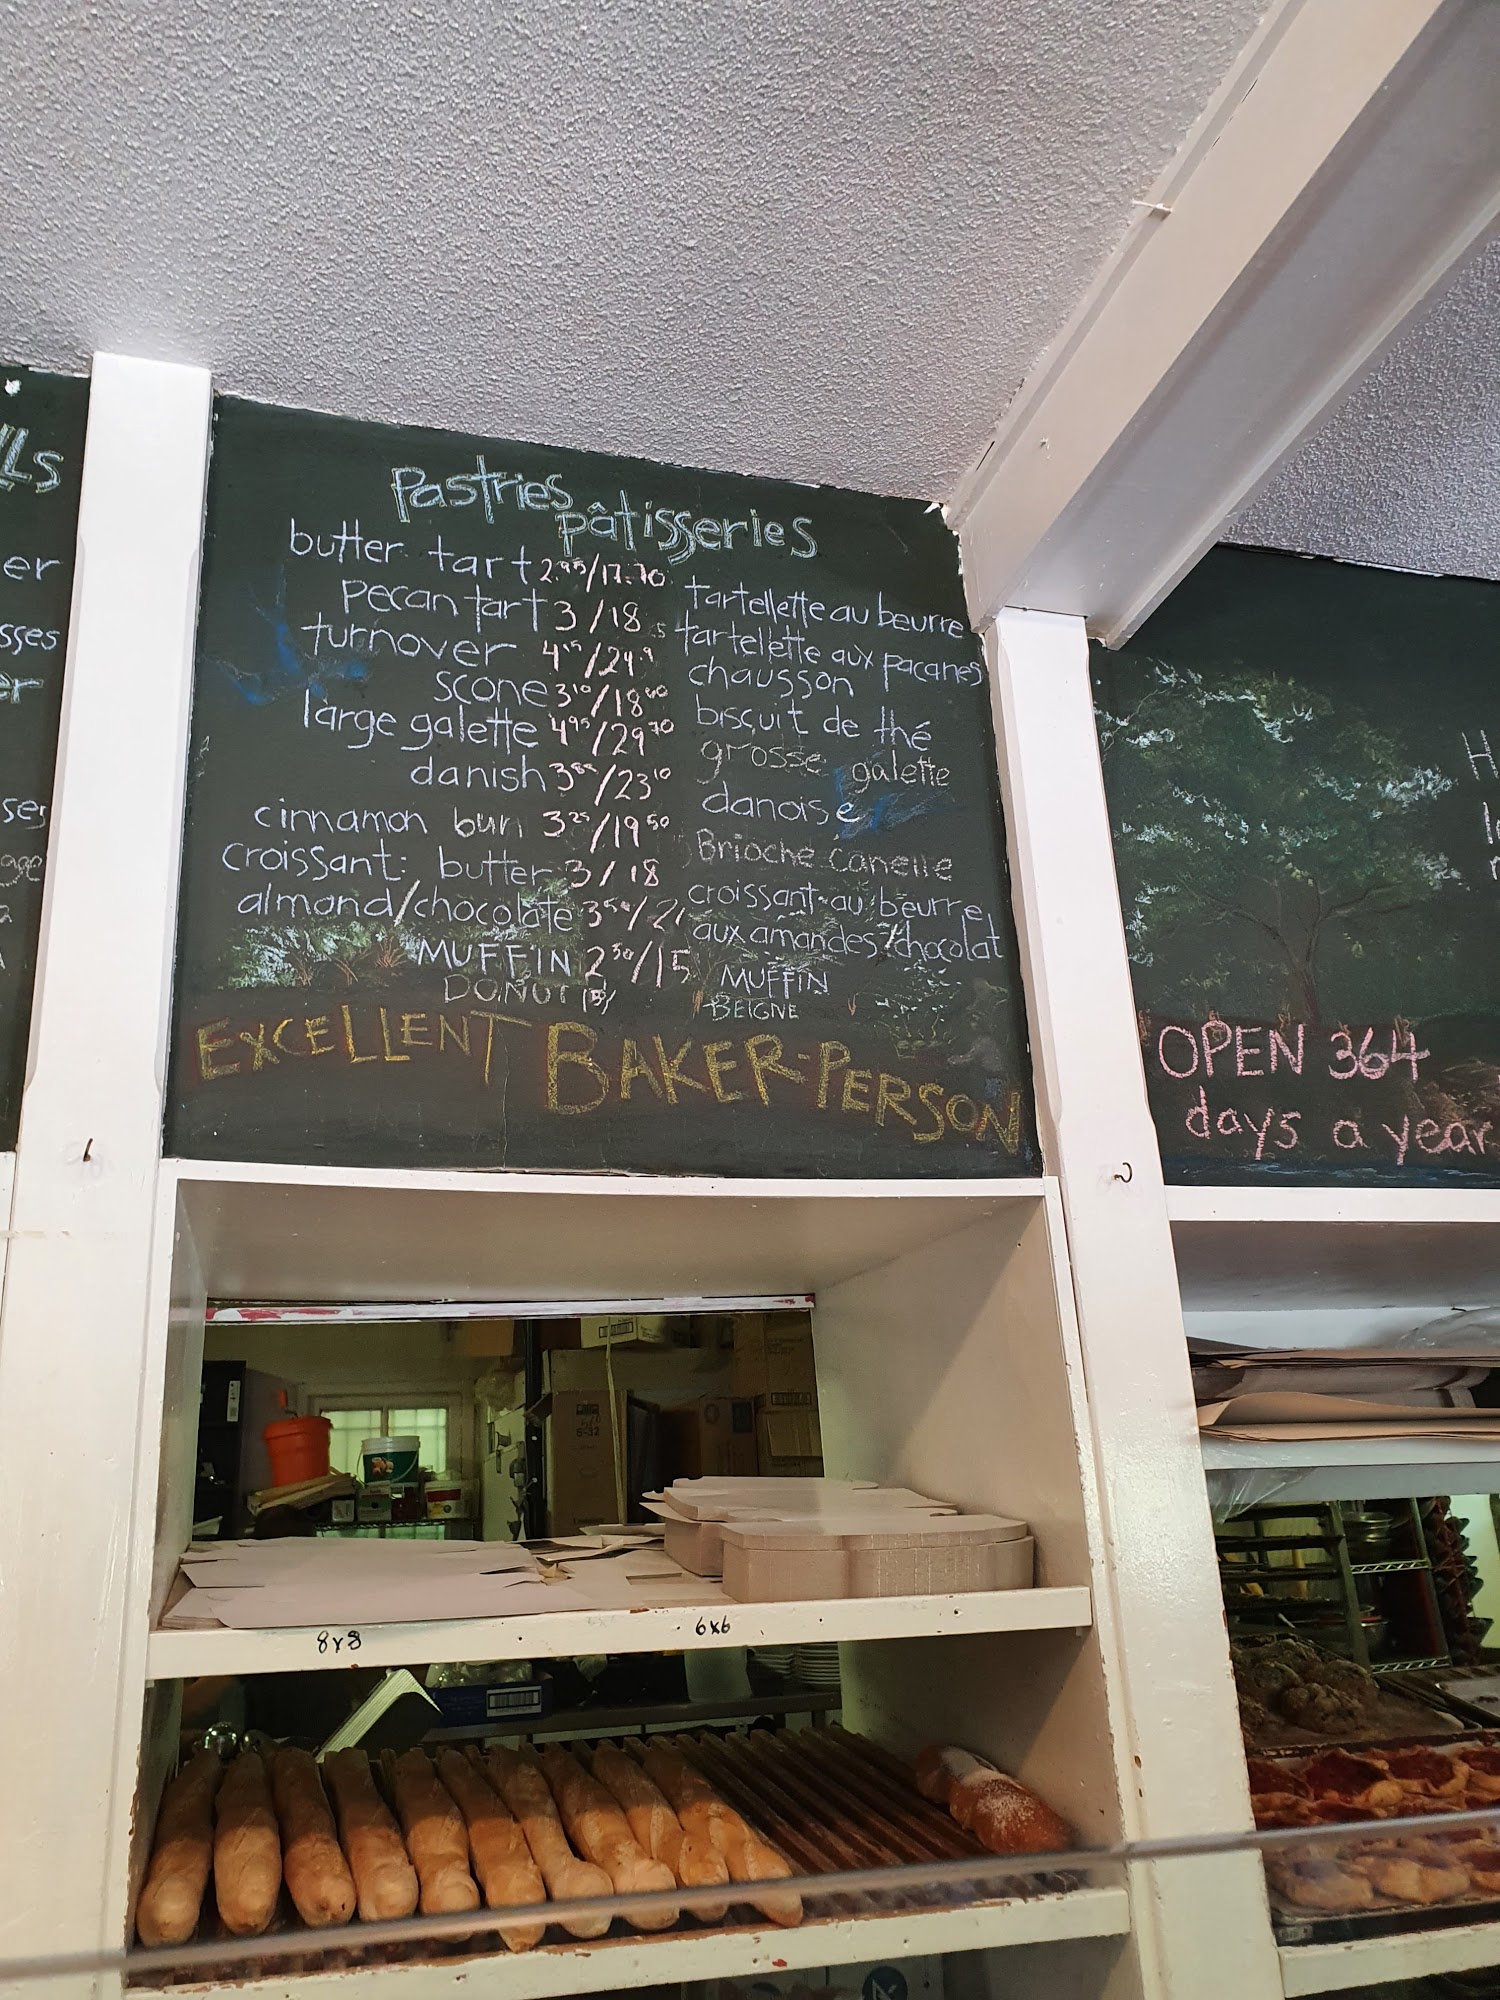 LLS
er
sses
er
ses
age
Pastries
pâtisseries
butter tart 2.95/17.70 tartellette au beurre
pecan tart 3/18 tartellette aux pacanes
turnover chausson
scone 310/1860 biscuit de thé
large galette 495/2970 grosse galette
danish 385/2310 danoise
cinnamon bun 325/1950 Brioche canelle
croissant: butter 3/18 croissant au beurre
almond/chocolate 350/21 aux amandes/chocolat
MUFFIN 250/15 MUFFIN
DONUT BEIGNE
EXCELLENT BAKER-PERSON
OPEN 364
days a year
8x8
6x6
S-32